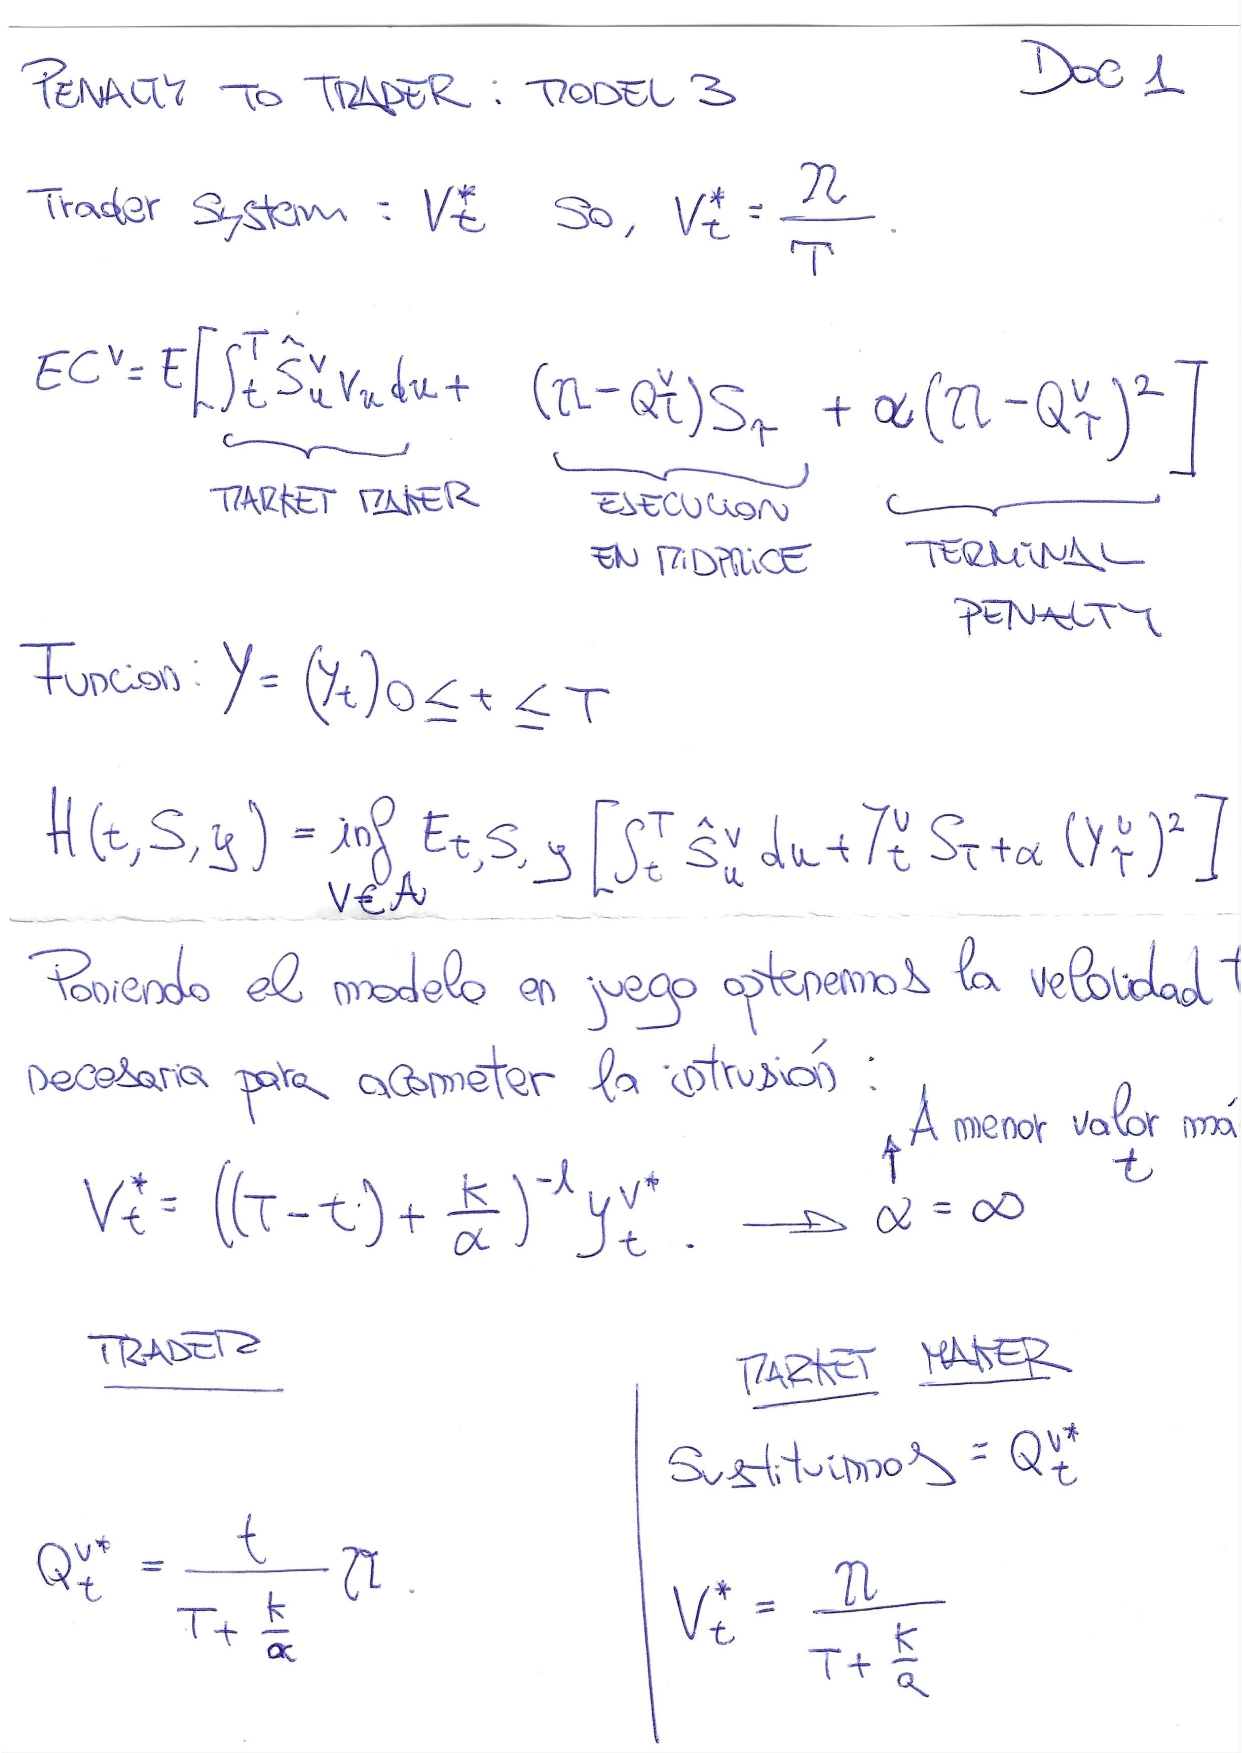 PENALTY TO TRADER : MODEL 3
Doc 1
Trader System : V_t^* So, V_t^* = 𝔑/T.
EC^v = E[∫_t^T Ŝ_u^v v_u du + (𝔑 - Q_t^v) S_T + α(𝔑 - Q_T^v)^2]
MARKET MAKER
EJECUCION
EN MIDPRICE
TERMINAL
PENALTY
Funcion : Y = (Y_t) 0 ≤ t ≤ T
H(t, S, y) = inf E_t,S,y [∫_t^T Ŝ_u^v du + Y_t^v S_T + α (Y_T^v)^2]
V ∈ A
Poniendo el modelo en juego optenemos la velocidad t
necesaria para acometer la intrusión :
A menor valor má
t
V_t^* = ((T - t) + k/α)^-1 y_t^v*. → α = ∞
TRADER
MARKET MAKER
Sustituimos = Q_t^v*
Q_t^v* = t/(T + k/α) 𝔑.
V_t^* = 𝔑/(T + k/α)